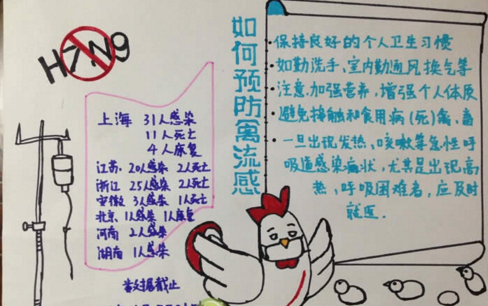 H7N9
上海 31人感染
11人死亡
4人康复
江苏: 20人感染 2人死亡
浙江 25人感染 2人死亡
安徽 3人感染 1人死亡
北京 1人感染 1人康复
河南 2人感染
湖南 1人感染
数据截止
如何预防禽流感
保持良好的个人卫生习惯
如勤洗手、室内勤通风换气等
注意加强营养,增强个人体质
避免接触和食用病(死)禽、畜
一旦出现发热、咳嗽等急性呼
吸道感染症状,尤其是出现高
热、呼吸困难者,应及时
就医.